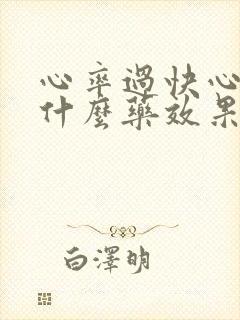 心率過快心
什麼藥效果
白澤明